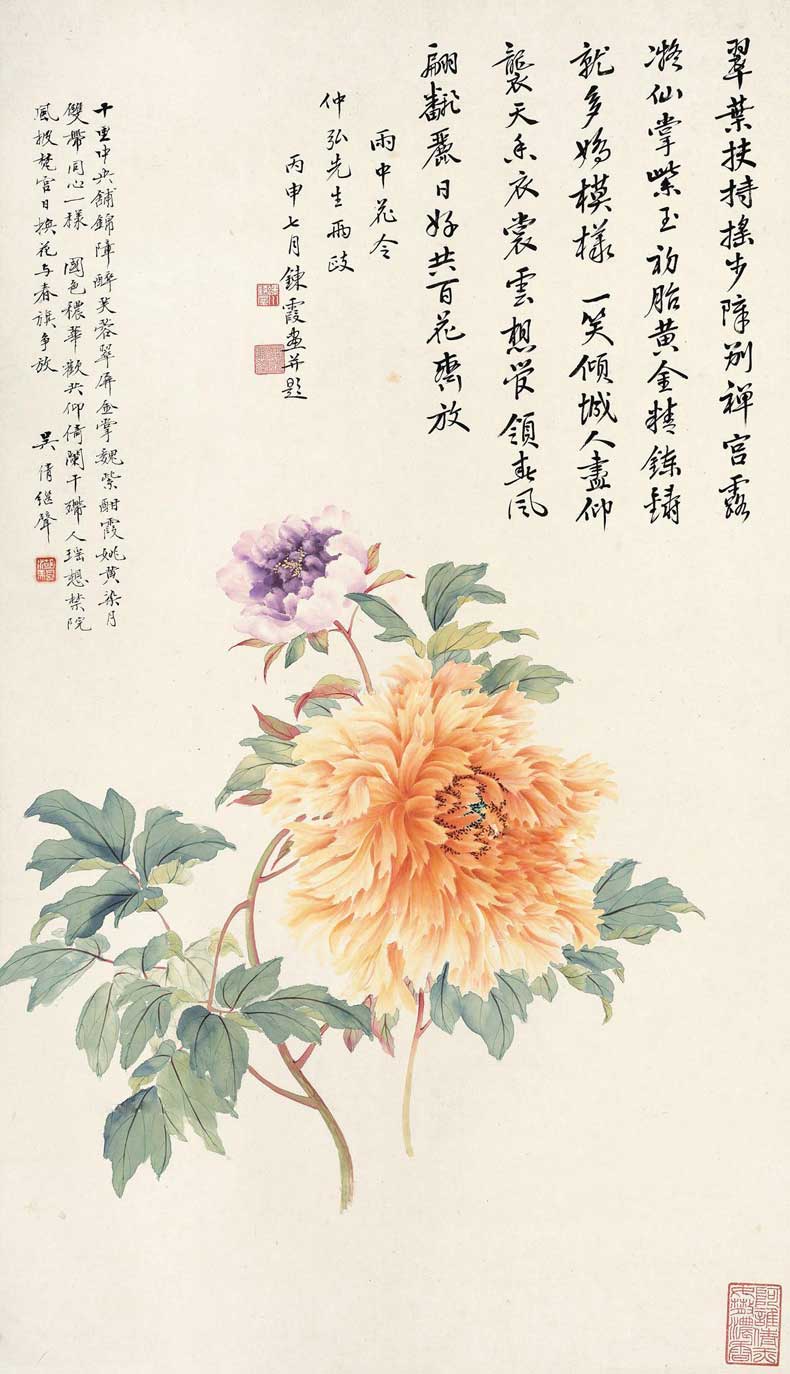 翠葉扶持搖步障别禅宫露
凝仙掌紫玉初胎黄金精鍊鑄
就多嬌模樣 一笑傾城人盡仰
襲天香衣裳雲想管領春風
翩翻麗日好共百花齊放
雨中花令
仲弘先生両政
丙申七月鍊霞画并題
千重中央鋪錦障醉芙蓉翠屏金掌魏紫酣霞姚黄染月
雙帶同心一樣 國色穠華歡共仰倚闌干殢人瑤想禁院
風披梵宮日換花与春旗争放 吳倩继聲